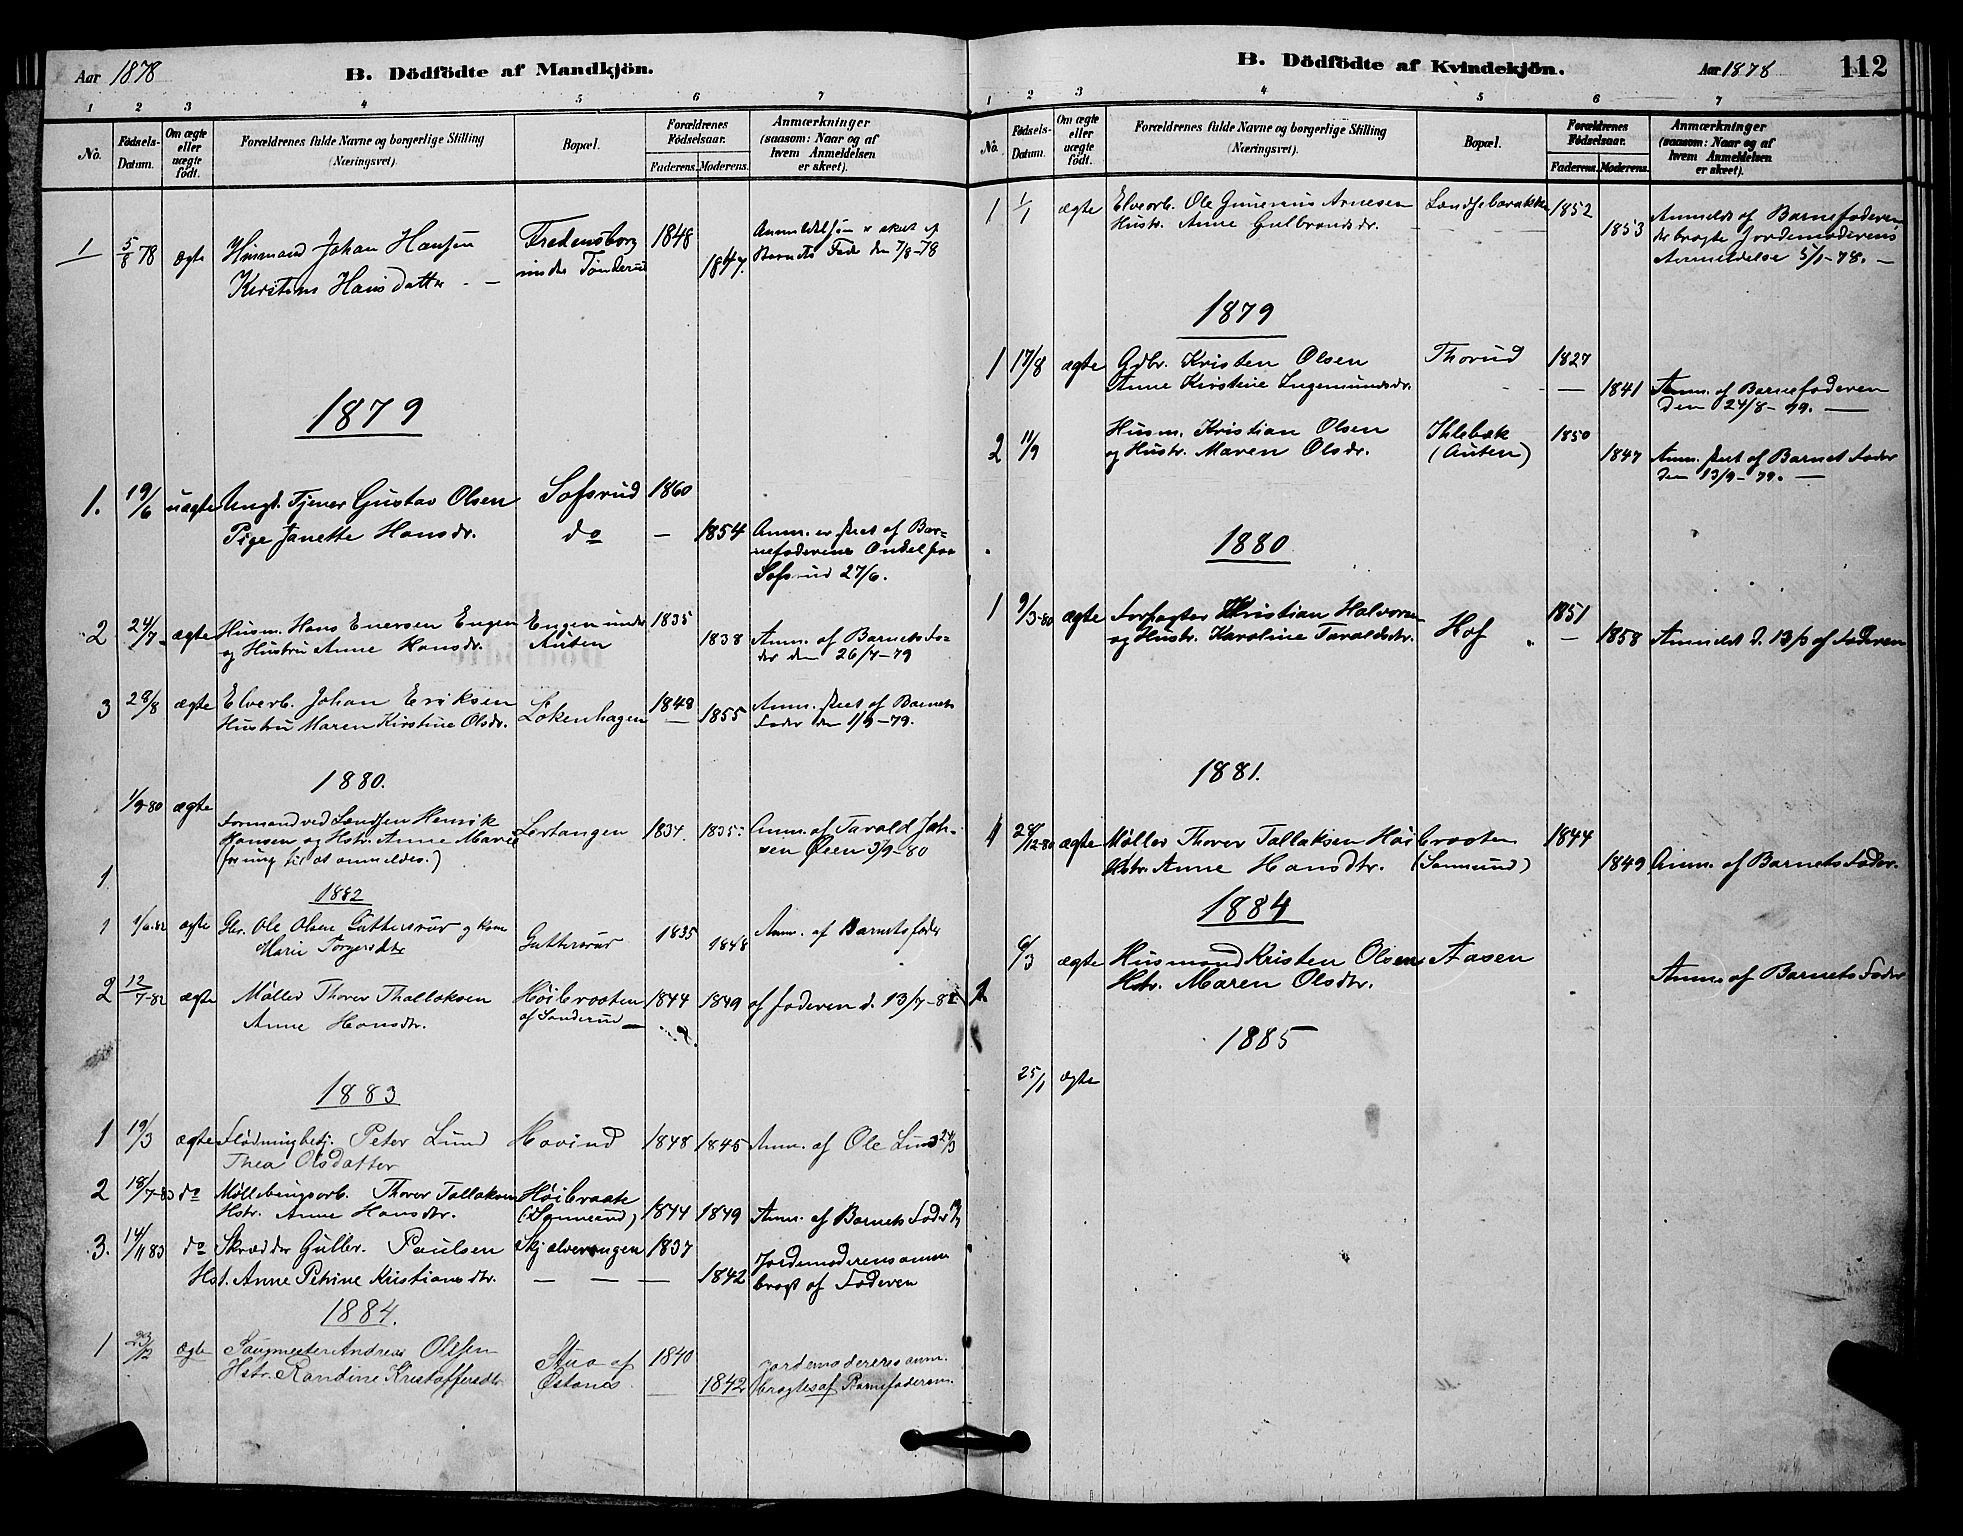 Aar 1878
B. Dödfödte af Mandkjön.
1 2 3 4 5 6 7
No.
Fødsels-Datum.
Om ægte eller uægte født.
Forældrenes fulde Navne og borgerlige Stilling (Næringsvei).
Bopæl.
Forældrenes Fødselsaar.
Faderens. Moderens.
Anmærkninger (saasom: Naar og af hvem Anmeldelsen er skeet).
1 5/8 78 ægte Husmand Johan Hansen Fredensborg 1848 Anmeldelsen er skeet af
Kirstine Hansdatter under Tønderud 1847. Barnets Fader den 7/8-78
1879
1. 19/6 uægte Ungk. Tjener Gustav Olsen Sofsrud 1860
Pige Janette Hansdr. do - 1854 Anm. er skeet af Bar-
nefaderens Onkel fra
Sofsrud 27/6.
2 24/7 ægte Husm. Hans Enersen Engen Engen under 1835
og Hustru Anne Hansdr. Auten 1838 Anm. af Barnets Fa-
der den 26/7-79
3 28/8 ægte Elverb. Johan Eriksen Løkenhagen 1848 Anm. skeet af Barnets
Hustru Maren Kirstine Olsdr. 1855 Fader den 1/9-79.
1880.
1/9-80 ægte Formand ved Landsen Henrik
Hansen og Hstr. Anne Marie Lertangen 1834. 1835. Anm. af Tarald Joh-
sen Øien 3/9-80
1
1882
1 1/6-82 ægte Gbr. Ole Olsen Guttersrud og Kone Guttersrud 1835 1848 Anm. af Barnets fader
Marie Torgersdtr
2 12/7-82 ægte Møller Thorer Thallaksen Høibraaten 1844 1849 af faderen d. 13/7-82
Anne Hansdtr. af Sanderud
1883
1 19/3 ægte Flødningbetj. Peter Lund Hovind 1848 1845 Anm. af Ole Lund 24/3
Thea Olsdatter
2 18/7-83 do Møllebrugsarb. Thorer Tallaksen Høibraate
Hstr. Anne Hansdtr. (Sannerud) 1844 1849 Anm. af Barnets Fader
3. 14/11 83 do Skrædder Gulbr. Paulsen Skjælverengen 1837 Jordemoderens anm.
Hst. Anne Petrine Kristiansdtr. — — — 1842 bragt af Faderen
1884.
1 23/12 ægte Saugmester Andreas Olssen Stua af 1840 Jordemoderens anm.
Hstr. Randine Kristoffersdtr. Østanes. 1842 bragtes af Barnefaderen.
B. Dödfödte af Kvindekjön.
Aar 1878
112
1 2 3 4 5 6 7
No.
Fødsels-Datum.
Om ægte eller uægte født.
Forældrenes fulde Navne og borgerlige Stilling (Næringsvei).
Bopæl.
Forældrenes Fødselsaar.
Faderens. Moderens.
Anmærkninger (saasom: Naar og af hvem Anmeldelsen er skeet).
1 1/1 ægte Elvearb. Ole Gunerius Arnesen Landsebarakken 1852 Anmeldt af Barnefaderen
Hustr. Anne Gulbrandsdr. 1853 der bragte Jordemoderens
Anmeldelse 5/1-78. —
1879
1 17/8 ægte Gdbr. Kristen Olsen Thorud 1827
Anne Kirstine Ingemundsdr. — 1841 Anm. af Barnefaderen
den 24/8-79. —
2 11/9 Husm. Kristian Olsen Ihlebæk 1850
og Hustr. Maren Olsdr. (Auten) 1847 Anm. skeet af Barnets Fader
den 13/9-79. —
1880
1 9/3-80 ægte Forpagter Kristian Halvorsen Hof 1851
og Hustr. Karoline Taraldsdtr. — 1858 Anmeldt d. 13/3 af Faderen
1881.
1 28/12-80 ægte Møller Thorer Tallaksen Høibraaten 1844
Hstr. Anne Hansdtr. (Sannerud) 1849 Anm. af Barnets Fader.
1884
1 6/3 ægte Husmand Kristen Olsen Aasen
Hstr. Maren Olsdtr. Anm. af Barnets Fader
1885
25/1 ægte